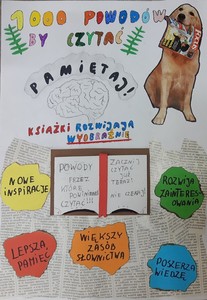 1000 POWODÓW
BY CZYTAĆ
PAMIĘTAJ!
KSIĄŻKI ROZWIJAJĄ
WYOBRAŹNIĘ
POWODY
PRZEZ
KTÓRE
POWINIENEŚ
CZYTAĆ!!!
ZACZNIJ
CZYTAĆ
JUŻ
TERAZ!
NIE CZEKAJ!
NOWE
INSPIRACJE
ROZWIJA
ZAINTERES-
OWANIA
LEPSZA
PAMIĘĆ
WIĘKSZY
ZASÓB
SŁOWNICTWA
POSZERZA
WIEDZĘ